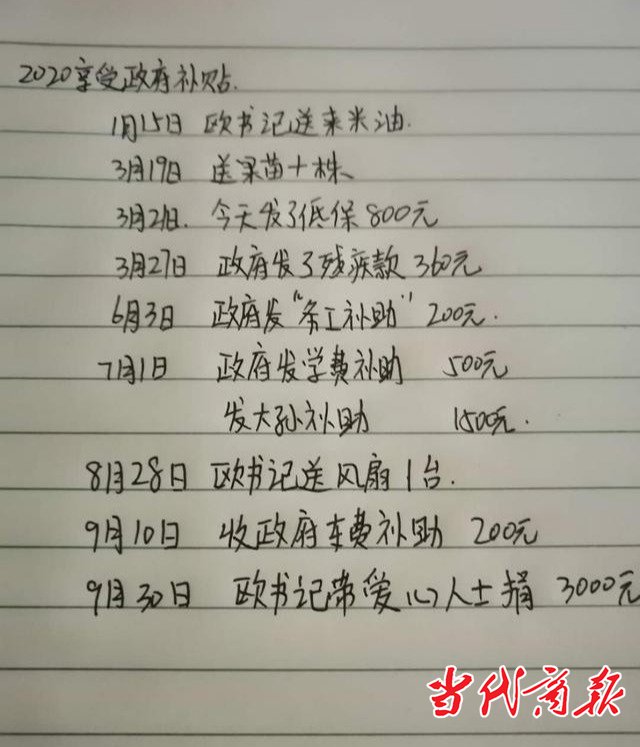 2020享受政府补贴.
1月15日 欧书记送来米油.
3月19日 送果苗十株、
3月21日. 今天发了低保800元
3月27日 政府发了残疾款360元
6月3日 政府发“务工补助”200元.
7月1日 政府发学费补助 500元
发大孙补助 1500元.
8月28日 欧书记送风扇1台.
9月10日 收政府车费补助 200元
9月30日 欧书记带爱心人士捐 3000元
当代商报